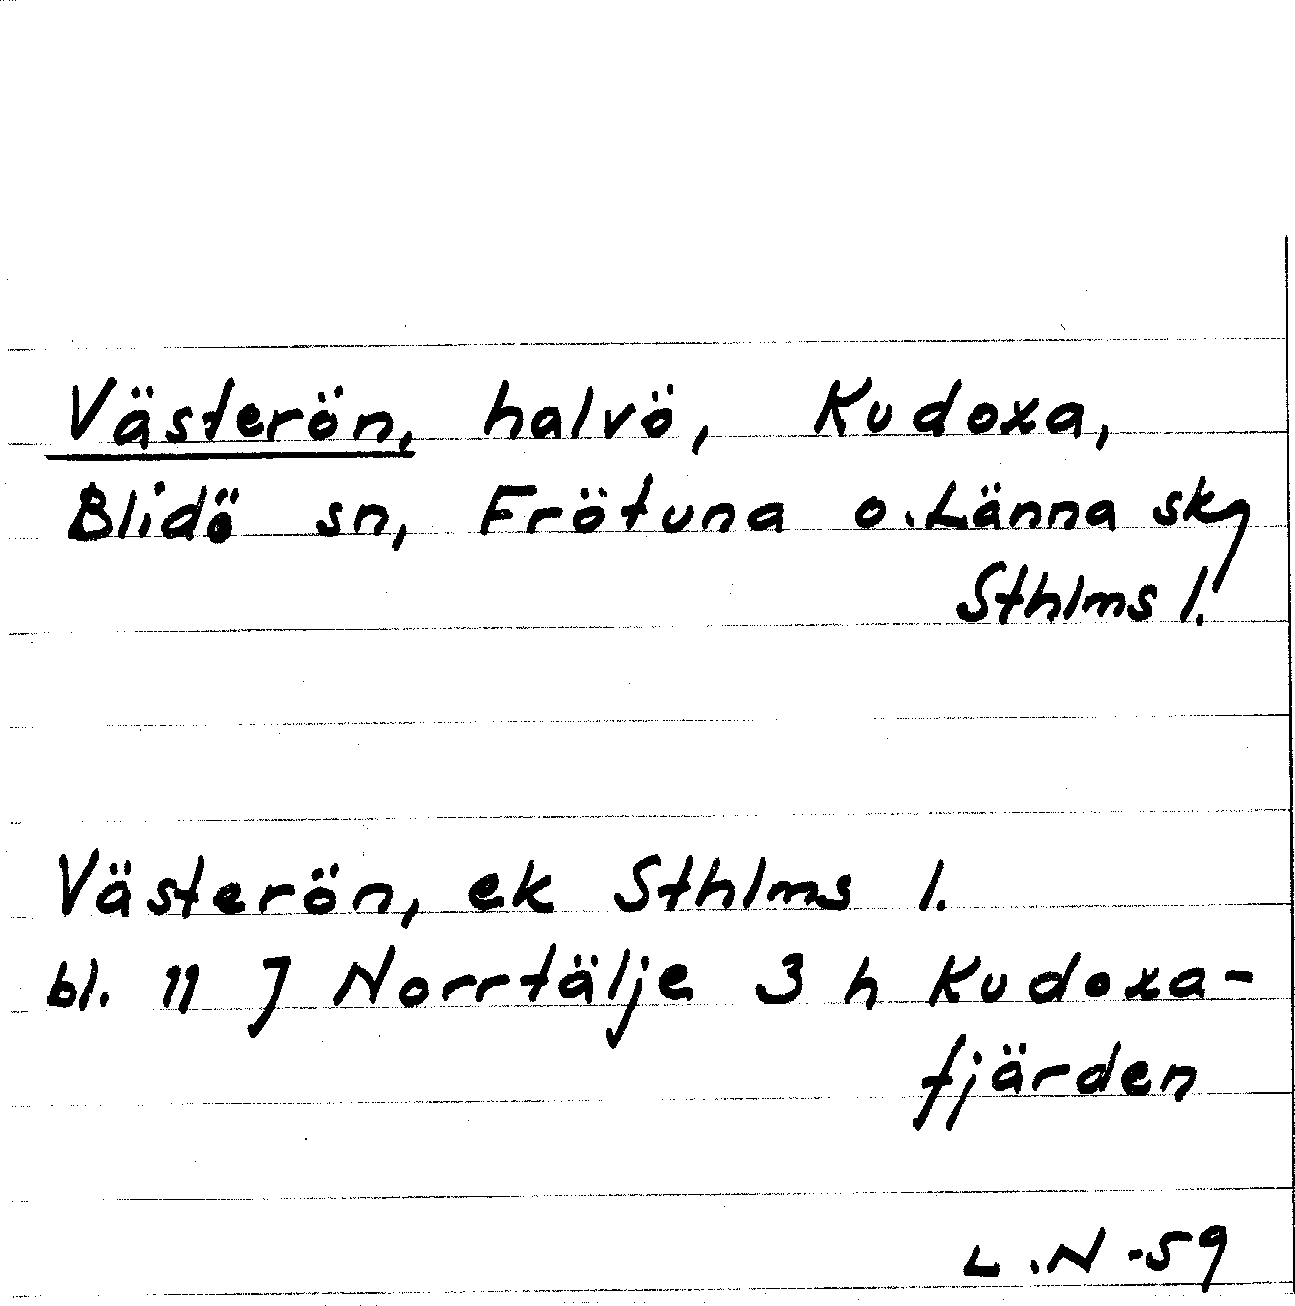 Västerön, halvö, Kudoxa,
Blidö sn, Frötuna o. Länna skg
Sthlms l.
Västerön, ek Sthlms l.
bl. 11 J Norrtälje 3 h Kudoxa-
fjärden
L.N -59